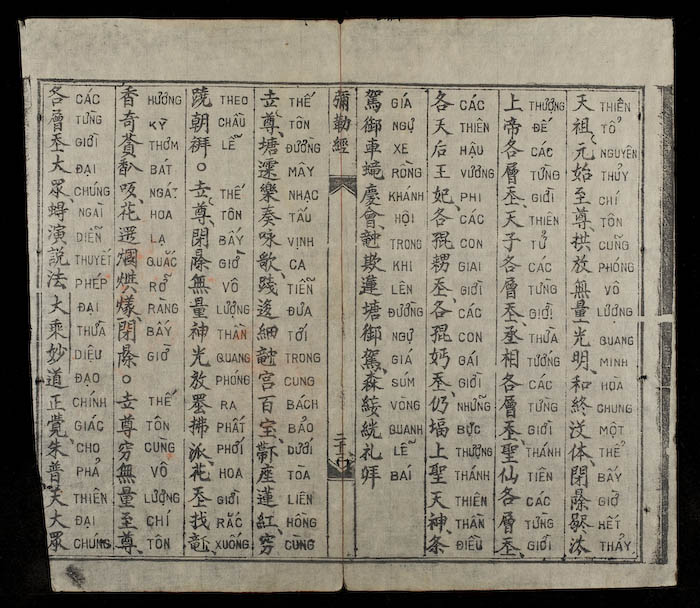 天祖元始至尊拱放無量光明和終没体閉歇汰
THIÊN TỔ NGUYÊN THỦY CHÍ TÔN CŨNG PHÓNG VÔ LƯỢNG QUANG MINH HÒA CHUNG MỘT THỂ BẤY GIỜ HẾT THẢY
上帝各層丕天子各層丕丞相各層丕聖仙各層丕
THƯỢNG ĐẾ CÁC TỪNG GIỚI THIÊN TỬ CÁC TỪNG GIỚI THỪA TƯỚNG CÁC TỪNG GIỚI THÁNH TIÊN CÁC TỪNG GIỚI
各天后王妃各丕各丕仍堛上聖天神条
CÁC THIÊN HẬU VƯƠNG PHI CÁC CON GIAI GIỜI CÁC CON GÁI GIỜI NHỮNG BỰC THƯỢNG THÁNH THIÊN THẦN ĐIỀU
駕御車慶會𥪝欺蓮塘御駕森絖礼拜
GIÁ NGỰ XE RỒNG KHÁNH HỘI TRONG KHI LÊN ĐƯỜNG NGỰ GIÁ SÚM VÒNG QUANH LỄ BÁI
彌勒經
二十
尊塘樂奏咏歌踐𥪝宮百宝座蓮紅穷
THẾ TÔN ĐƯỜNG MÂY NHẠC TẤU VỊNH CA TIỄN ĐƯA TỚI TRONG CUNG BÁCH BẢO DƯỚI TÒA LIÊN HỒNG CÙNG
朝拜。尊閉無量神光放拂派花丕
THEO CHẦU LỄ THẾ TÔN BẤY GIỜ VÔ LƯỢNG THẦN QUANG PHÓNG RA PHẤT PHỚI HOA GIỚI RẮC XUỐNG
香奇花閉。尊穷無量至尊
HƯƠNG KỲ THƠM BÁT NGÁT HOA LẠ QUẮC RỠ RÀNG BẤY GIỜ THẾ TÔN CÙNG VÔ LƯỢNG CHÍ TÔN
各層丕大眾演說法大乘妙道正覺朱普天大眾
CÁC TỪNG GIỚI ĐẠI CHÚNG NGÀI DIỄN THUYẾT PHÉP ĐẠI THỪA DIỆU ĐẠO CHÍNH GIÁC CHO PHẢ THIÊN ĐẠI CHÚNG